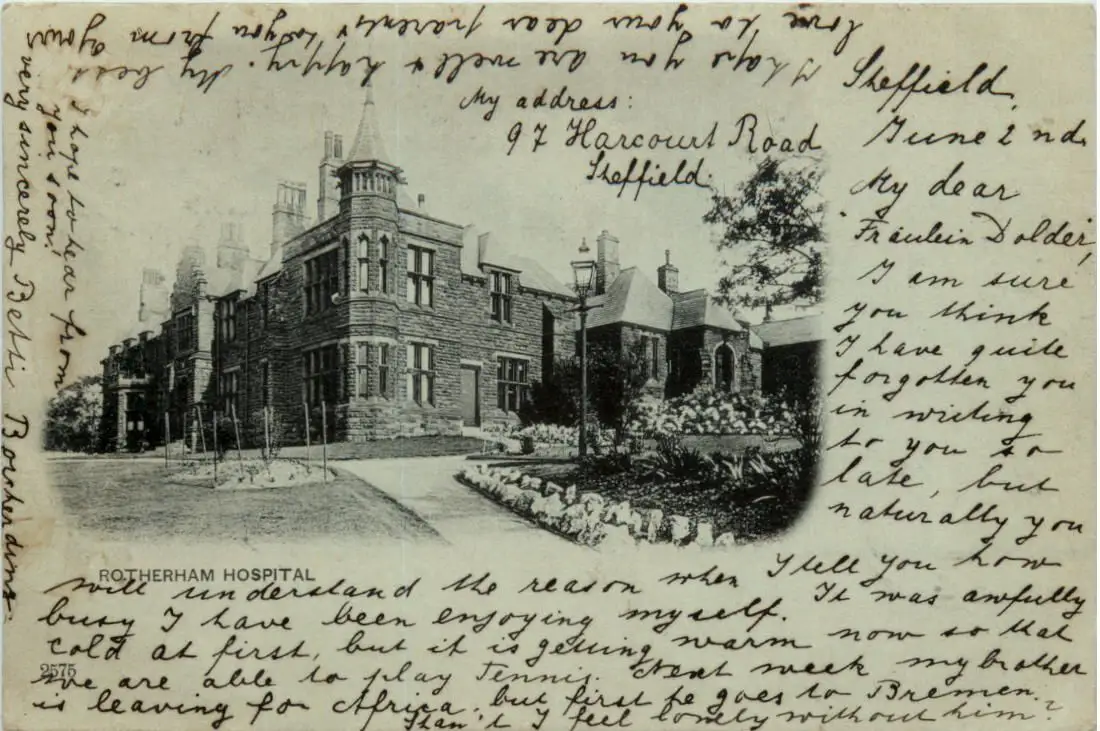 Sheffield,
June 2nd.
My dear
Fräulein Dolder,
I am sure
you think
I have quite
forgotten you
in writing
to you so
late, but
naturally you
will understand the reason when I tell you how
busy I have been enjoying myself. It was awfully
cold at first, but it is getting warm now so that
we are able to play Tennis. Next week my brother
is leaving for Africa, but first he goes to Bremen.
Shan't I feel lonely without him?
I hope you are well & happy. My best
love to your dear parents & to you from yours
very sincerely Betti
I hope to hear from
you soon!
My address:
97 Harcourt Road
Sheffield.
ROTHERHAM HOSPITAL
2575